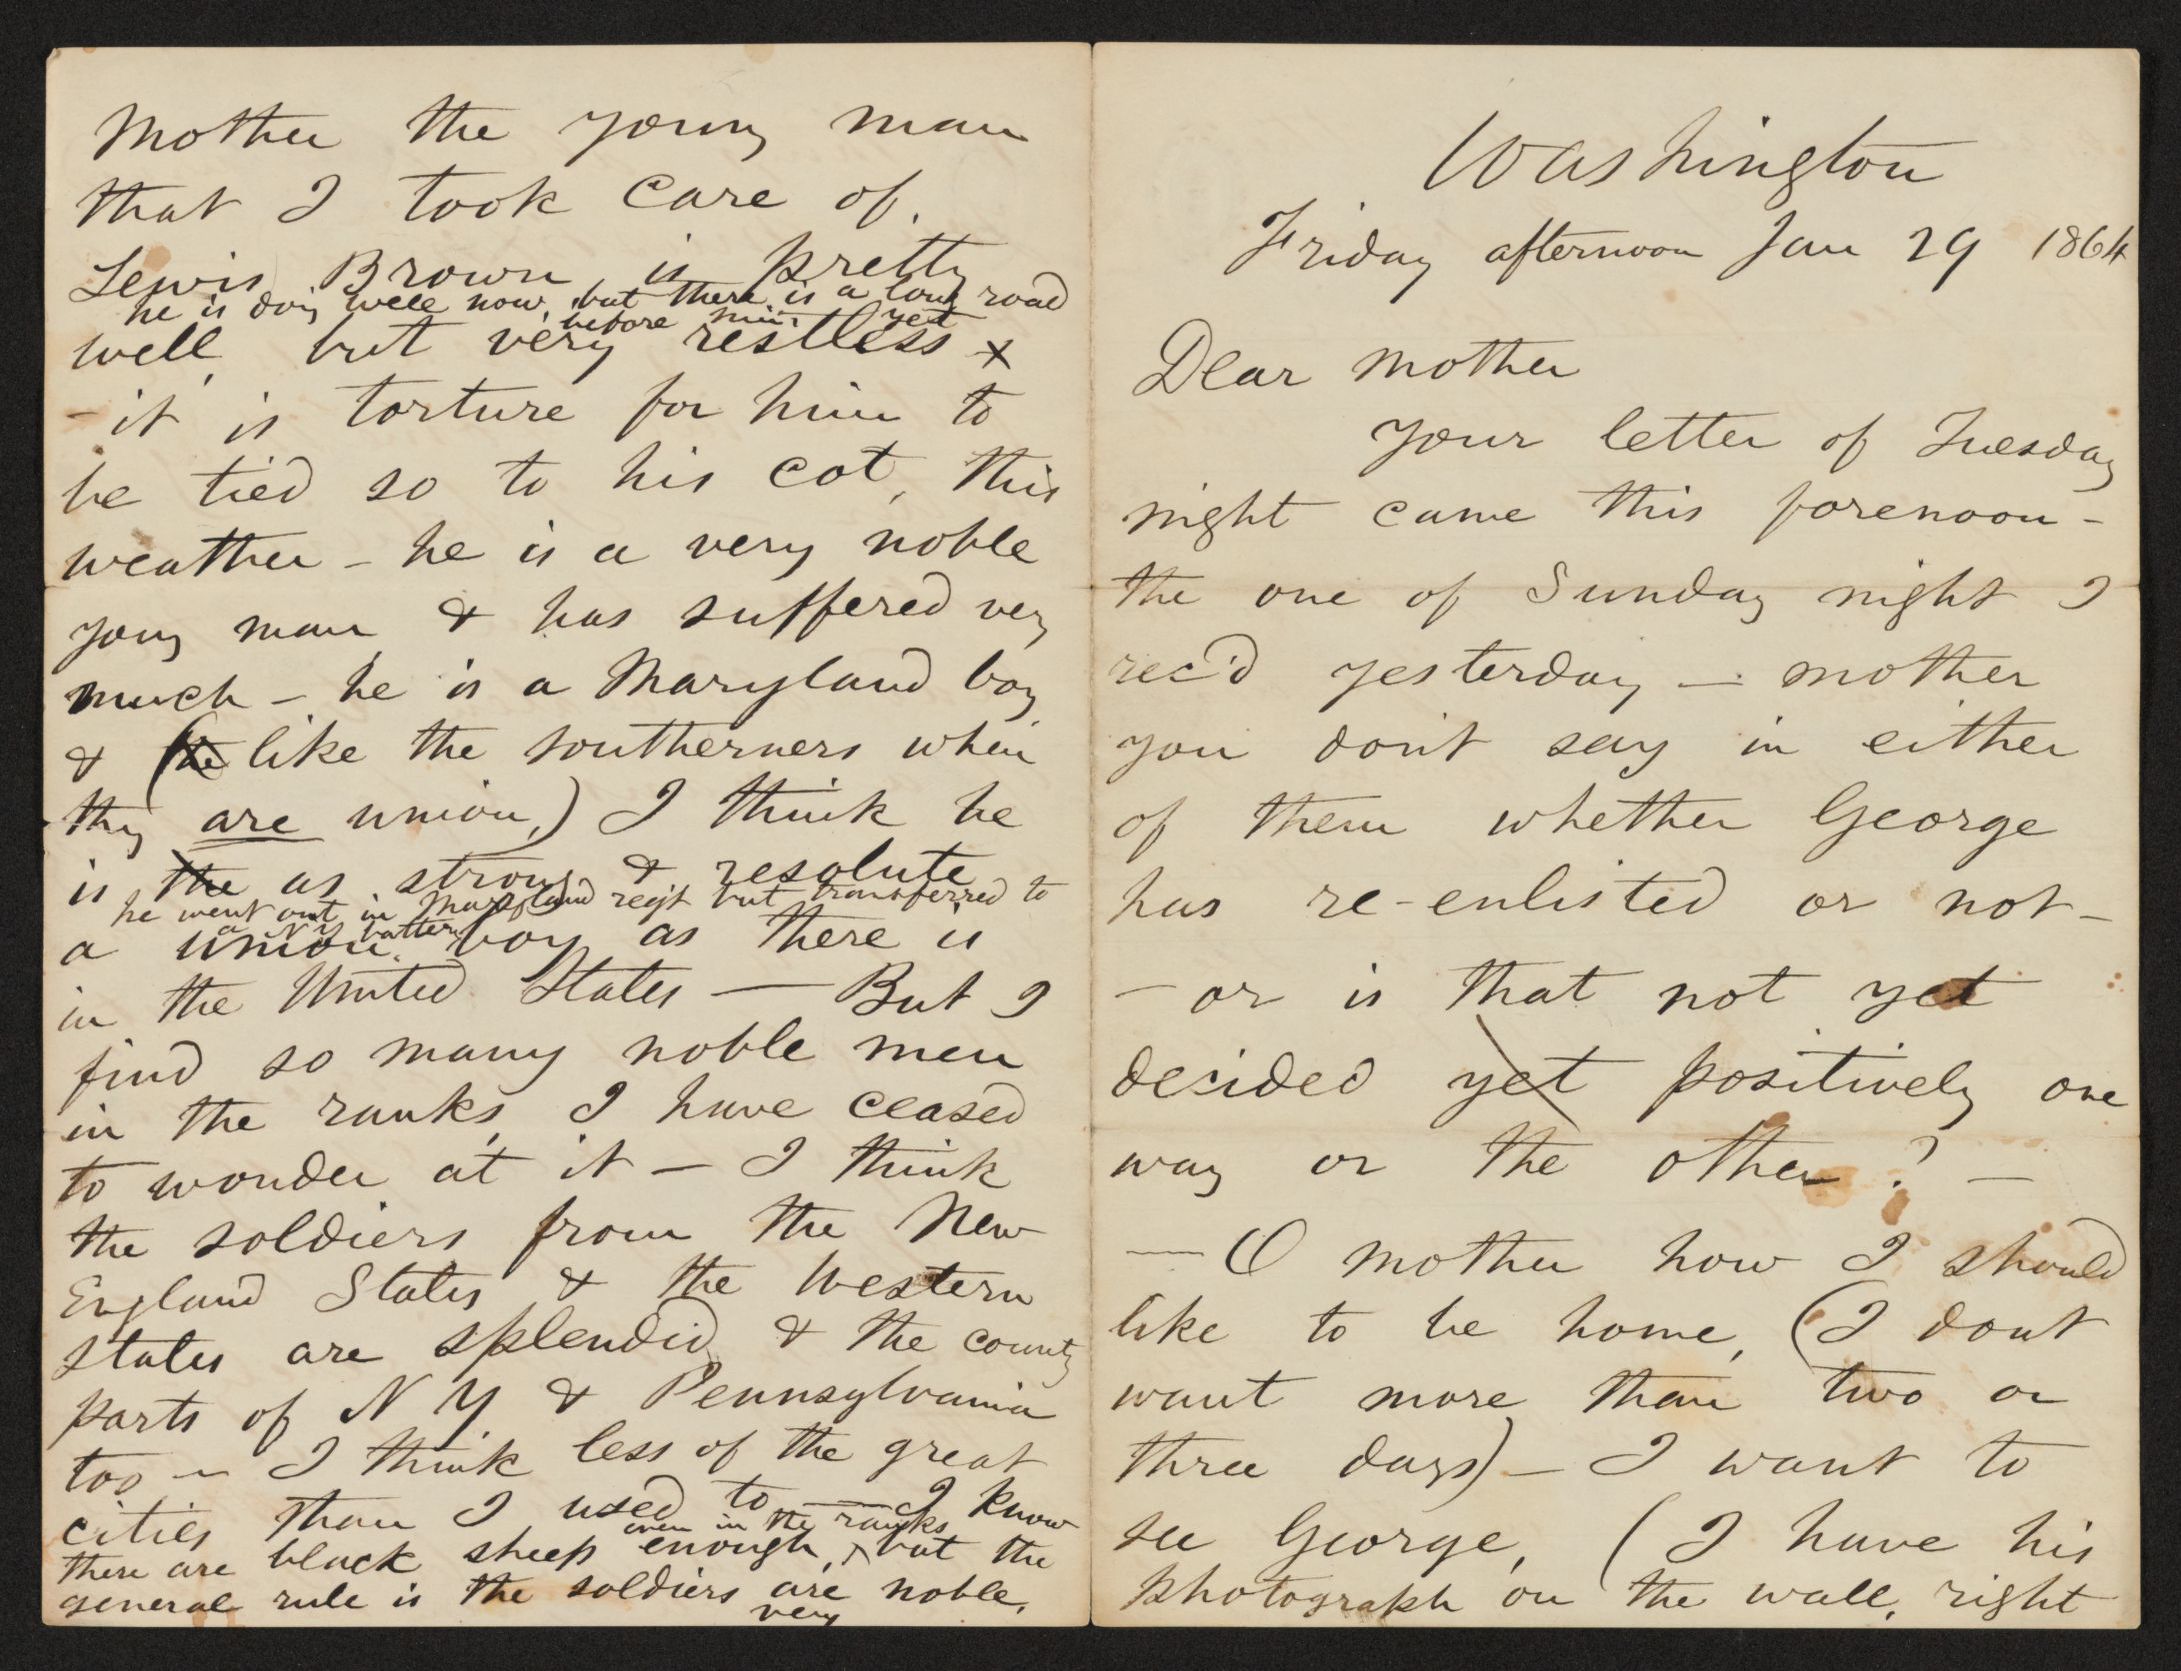 Washington
Friday afternoon Jan 29 1864
Dear mother
Your letter of Tuesday
night came this forenoon -
the one of Sunday night I
rec'd yesterday — mother
you don't say in either
of them whether George
has re-enlisted or not —
— or is that not yet
decided yet positively one
way or the other? —
— O mother how I should
like to be home, (I dont
want more than two or
three days) — I want to
see George, (I have his
photograph on the wall, right
Mother the young man
that I took care of.
Lewis Brown is pretty
he is doing well now, but there is a long road
before him yet
well, but very restless x
- it is torture for him to
be tied so to his cot, this
weather - he is a very noble
young man & has suffered very
much - he is a Maryland boy
& (he like the southerners when
they are union,) I think he
is the as strong & resolute
he went out in Maryland reg't but transferred to
a N Y battery
a union boy as there is
in the United States — But I
find so many noble men
in the ranks, I have ceased
to wonder at it — I think
the soldiers from the New
England States & the Western
states are splendid, & the country
parts of N Y & Pennsylvania
too — I think less of the great
cities than I used to — I know
even in the ranks
there are black sheep enough, but the
general rule is the soldiers are noble,
very